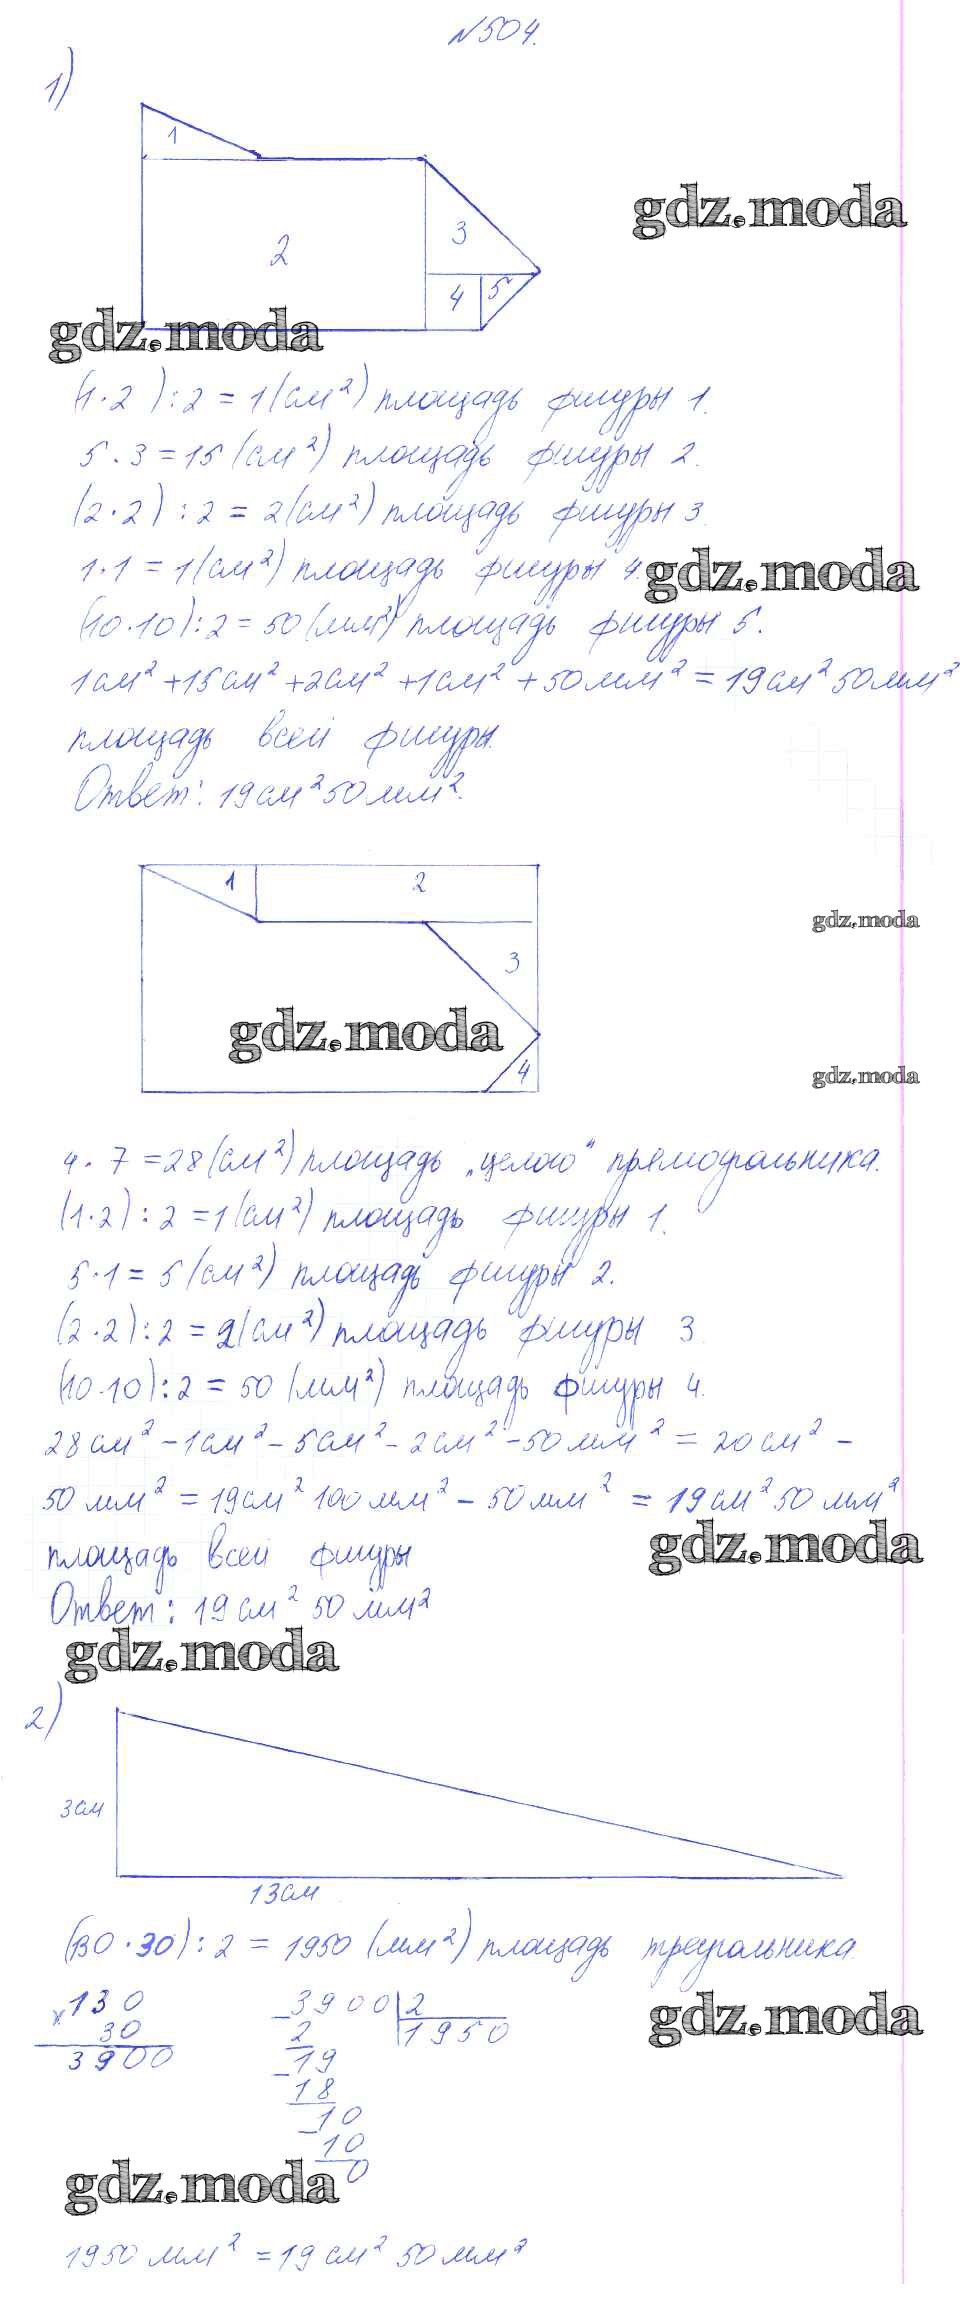 №504.
1)
1
2
3
4
5
gdz.moda
gdz.moda
(1·2):2=1(см²) площадь фигуры 1.
5·3=15(см²) площадь фигуры 2.
(2·2):2=2(см²) площадь фигуры 3.
1·1=1(см²) площадь фигуры 4.
gdz.moda
(10·10):2=50(мм²) площадь фигуры 5.
1см²+15см²+2см²+1см²+50мм²=19см²50мм²
площадь всей фигуры.
Ответ: 19см²50мм².
1
2
3
4
gdz.moda
gdz.moda
gdz.moda
4·7=28(см²) площадь „целого“ прямоугольника.
(1·2):2=1(см²) площадь фигуры 1.
5·1=5(см²) площадь фигуры 2.
(2·2):2=2(см²) площадь фигуры 3.
(10·10):2=50(мм²) площадь фигуры 4.
28см²-1см²-5см²-2см²-50мм²=20см²-
50мм²=19см²100мм²-50мм²=19см²50мм²
площадь всей фигуры
gdz.moda
Ответ: 19см²50мм²
gdz.moda
2)
3см
13см
(130·30):2=1950(мм²) площадь треугольника.
×130
30
3900
3900|2
1950
-2
-19
18
-10
10
0
gdz.moda
gdz.moda
1950мм²=19см²50мм²